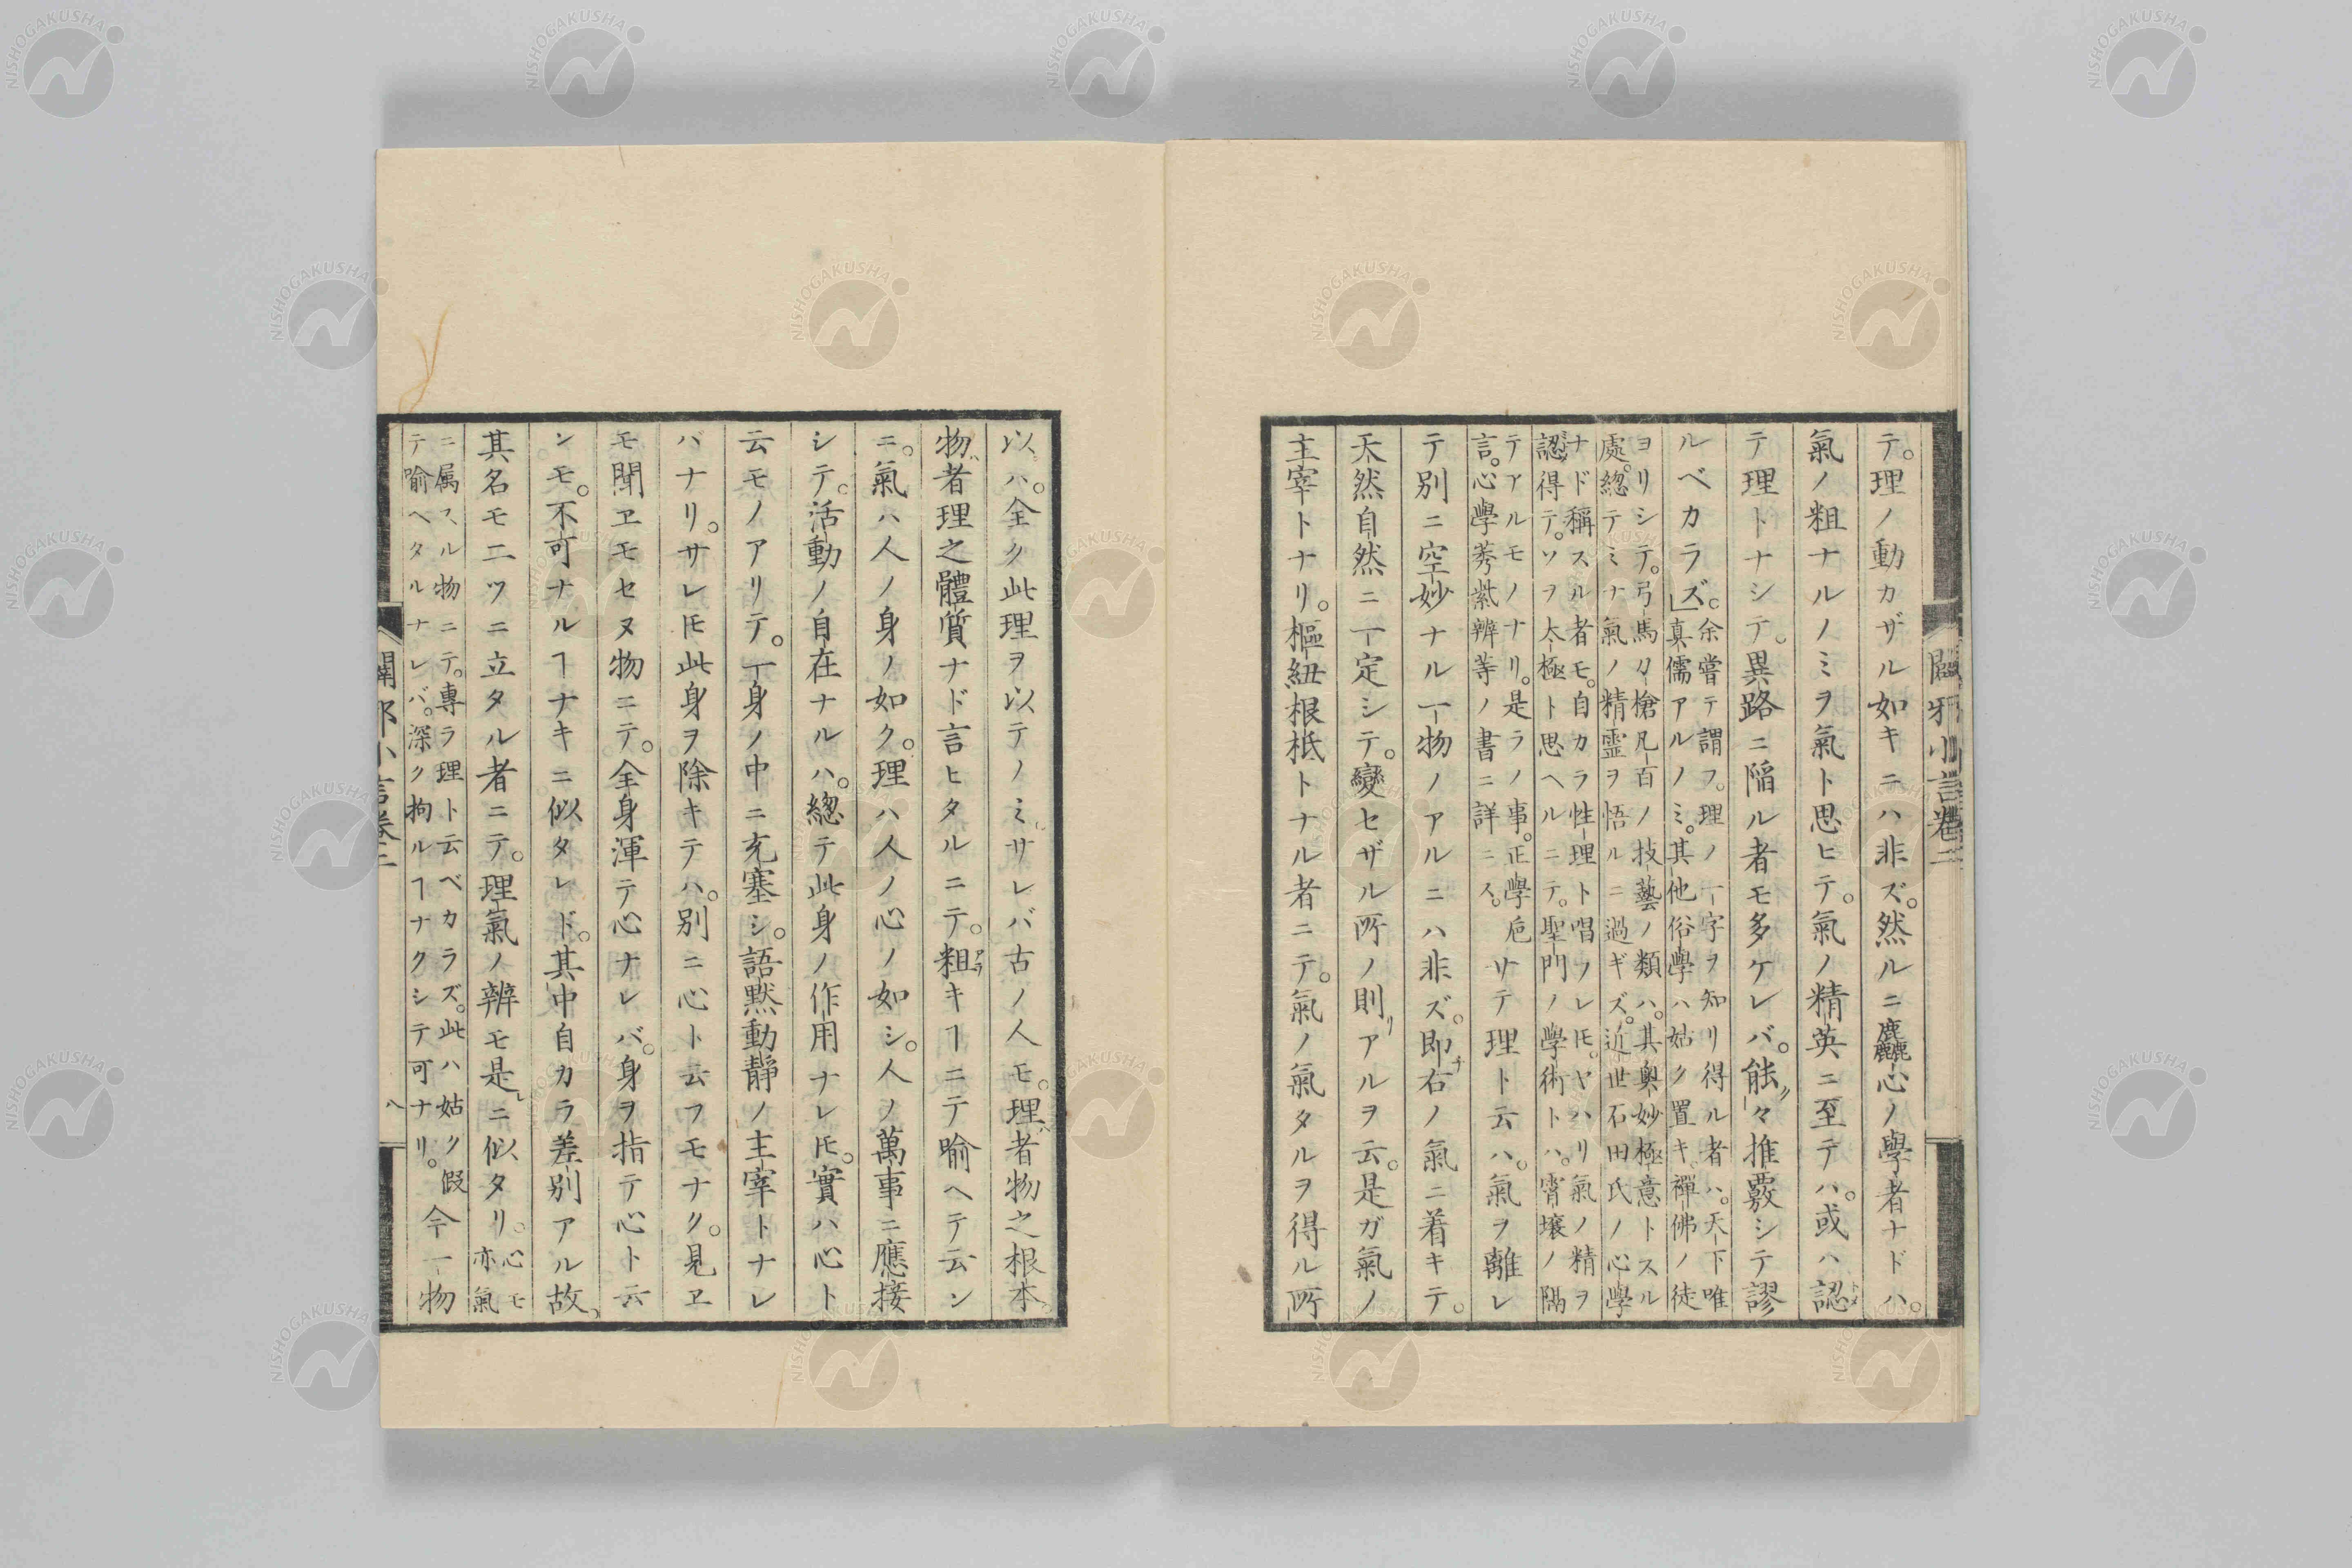 テ。理ノ動カザル如キニハ非ズ。然ルニ麤心ノ學者ナドハ。
氣ノ粗ナルノミヲ氣ト思ヒテ。氣ノ精英ニ至テハ。或ハ認
テ理トナシテ。異路ニ陷ル者モ多ケレバ。能々推覈シテ謬
ルベカラズ。
余嘗テ謂フ。理ノ一字ヲ知リ得ル者ハ。天下唯
真儒アルノミ。其他俗學ハ姑ク置キ。禪佛ノ徒
ヨリシテ。弓馬刀槍凡百ノ技藝ノ類ハ。其奧妙極意トスル
處。總テミナ氣ノ精靈ヲ悟ルニ過ギズ。近世石田氏ノ心學
ナド稱スル者モ。自カラ性理ト唱フレ𪜈。ヤハリ氣ノ精ヲ
認得テ。ソヲ太極ト思ヘルニテ。聖門ノ學術トハ。霄壤ノ隔
テアルモノナリ。是ラノ事。正學巵
言。心學莠紫辨等ノ書ニ詳ニス。
サテ理ト云ハ。氣ヲ離レ
テ別ニ空妙ナル一物ノアルニハ非ズ。即チ右ノ氣ニ着キテ。
天然自然ニ一定シテ。變セザル所ノ則アルヲ云。是ガ氣ノ
主宰トナリ。樞紐根柢トナル者ニテ。氣ノ氣タルヲ得ル所
闢邪小言卷二
以ハ。全ク此理ヲ以テノミ。サレバ古ノ人モ。理者物之根本。
物者理之體質ナド言ヒタルニテ。粗キヿニテ喻ヘテ云ン
ニ。氣ハ人ノ身ノ如ク。理ハ人ノ心ノ如シ。人ノ萬事ニ應接
シテ。活動ノ自在ナルハ。總テ此身ノ作用ナレ𪜈。實ハ心ト
云モノアリテ。一身ノ中ニ充塞シ。語默動靜ノ主宰トナレ
バナリ。サレ𪜈此身ヲ除キテハ。別ニ心ト云フモナク。見ヱ
モ聞ヱモセヌ物ニテ。全身渾テ心ナレバ。身ヲ指テ心ト云
ンモ。不可ナルヿナキニ似タレド。其中自カラ差別アル故、
其名モ二ツニ立タル者ニテ。理氣ノ辨モ是ニ似タリ。
心モ
亦氣
ニ屬スル物ニテ。專ラ理ト云ベカラズ。此ハ姑ク假
テ喻ヘタルナレバ。深ク拘ルヿナクシテ可ナリ。
今一物
闢邪小言卷二
八